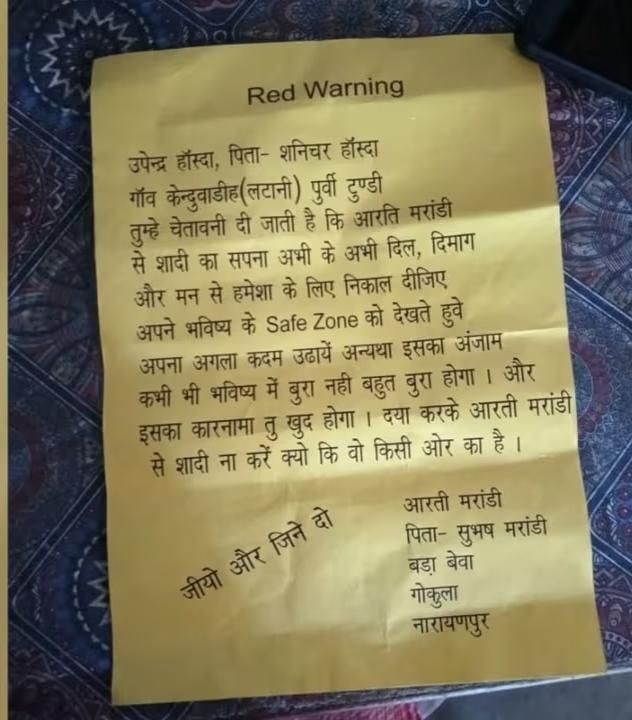 Red Warning
उपेन्द्र हॉस्दा, पिता- शनिचर हॉस्दा
गॉव केन्दुवाडीह(लटानी) पुर्वी टुण्डी
तुम्हे चेतावनी दी जाती है कि आरति मरांडी
से शादी का सपना अभी के अभी दिल, दिमाग
और मन से हमेशा के लिए निकाल दीजिए
अपने भविष्य के Safe Zone को देखते हुवे
अपना अगला कदम उढायें अन्यथा इसका अंजाम
कभी भी भविष्य में बुरा नही बहुत बुरा होगा । और
इसका कारनामा तु खुद होगा । दया करके आरती मरांडी
से शादी ना करें क्यो कि वो किसी ओर का है ।
जीयो और जिने दो
आरती मरांडी
पिता- सुभष मरांडी
बडा बेवा
गोकुला
नारायणपुर